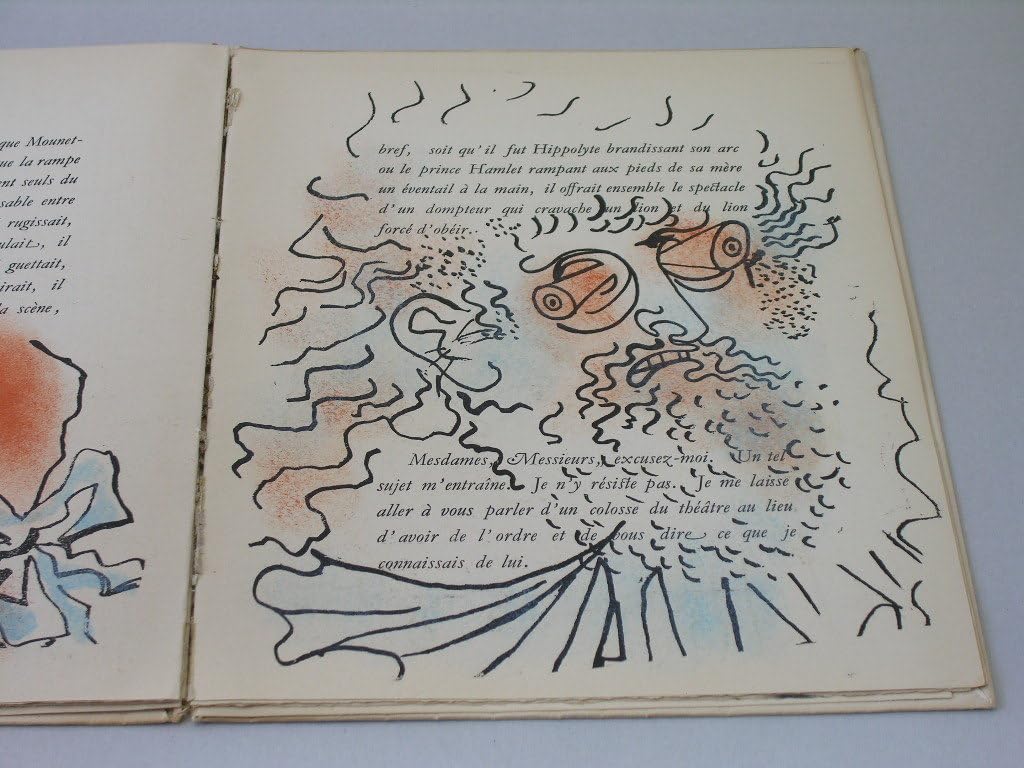 que Mounet-
ue la rampe
ent seuls du
sable entre
rugissait,
ulait, il
guettait,
irait, il
a scène,
bref, soit qu'il fut Hippolyte brandissant son arc
ou le prince Hamlet rampant aux pieds de sa mère
un éventail à la main, il offrait ensemble le spectacle
d'un dompteur qui cravache un lion et du lion
forcé d'obéir.
Mesdames, Messieurs, excusez-moi. Un tel
sujet m'entraîne. Je n'y résiste pas. Je me laisse
aller à vous parler d'un colosse du théâtre au lieu
d'avoir de l'ordre et de vous dire ce que je
connaissais de lui.